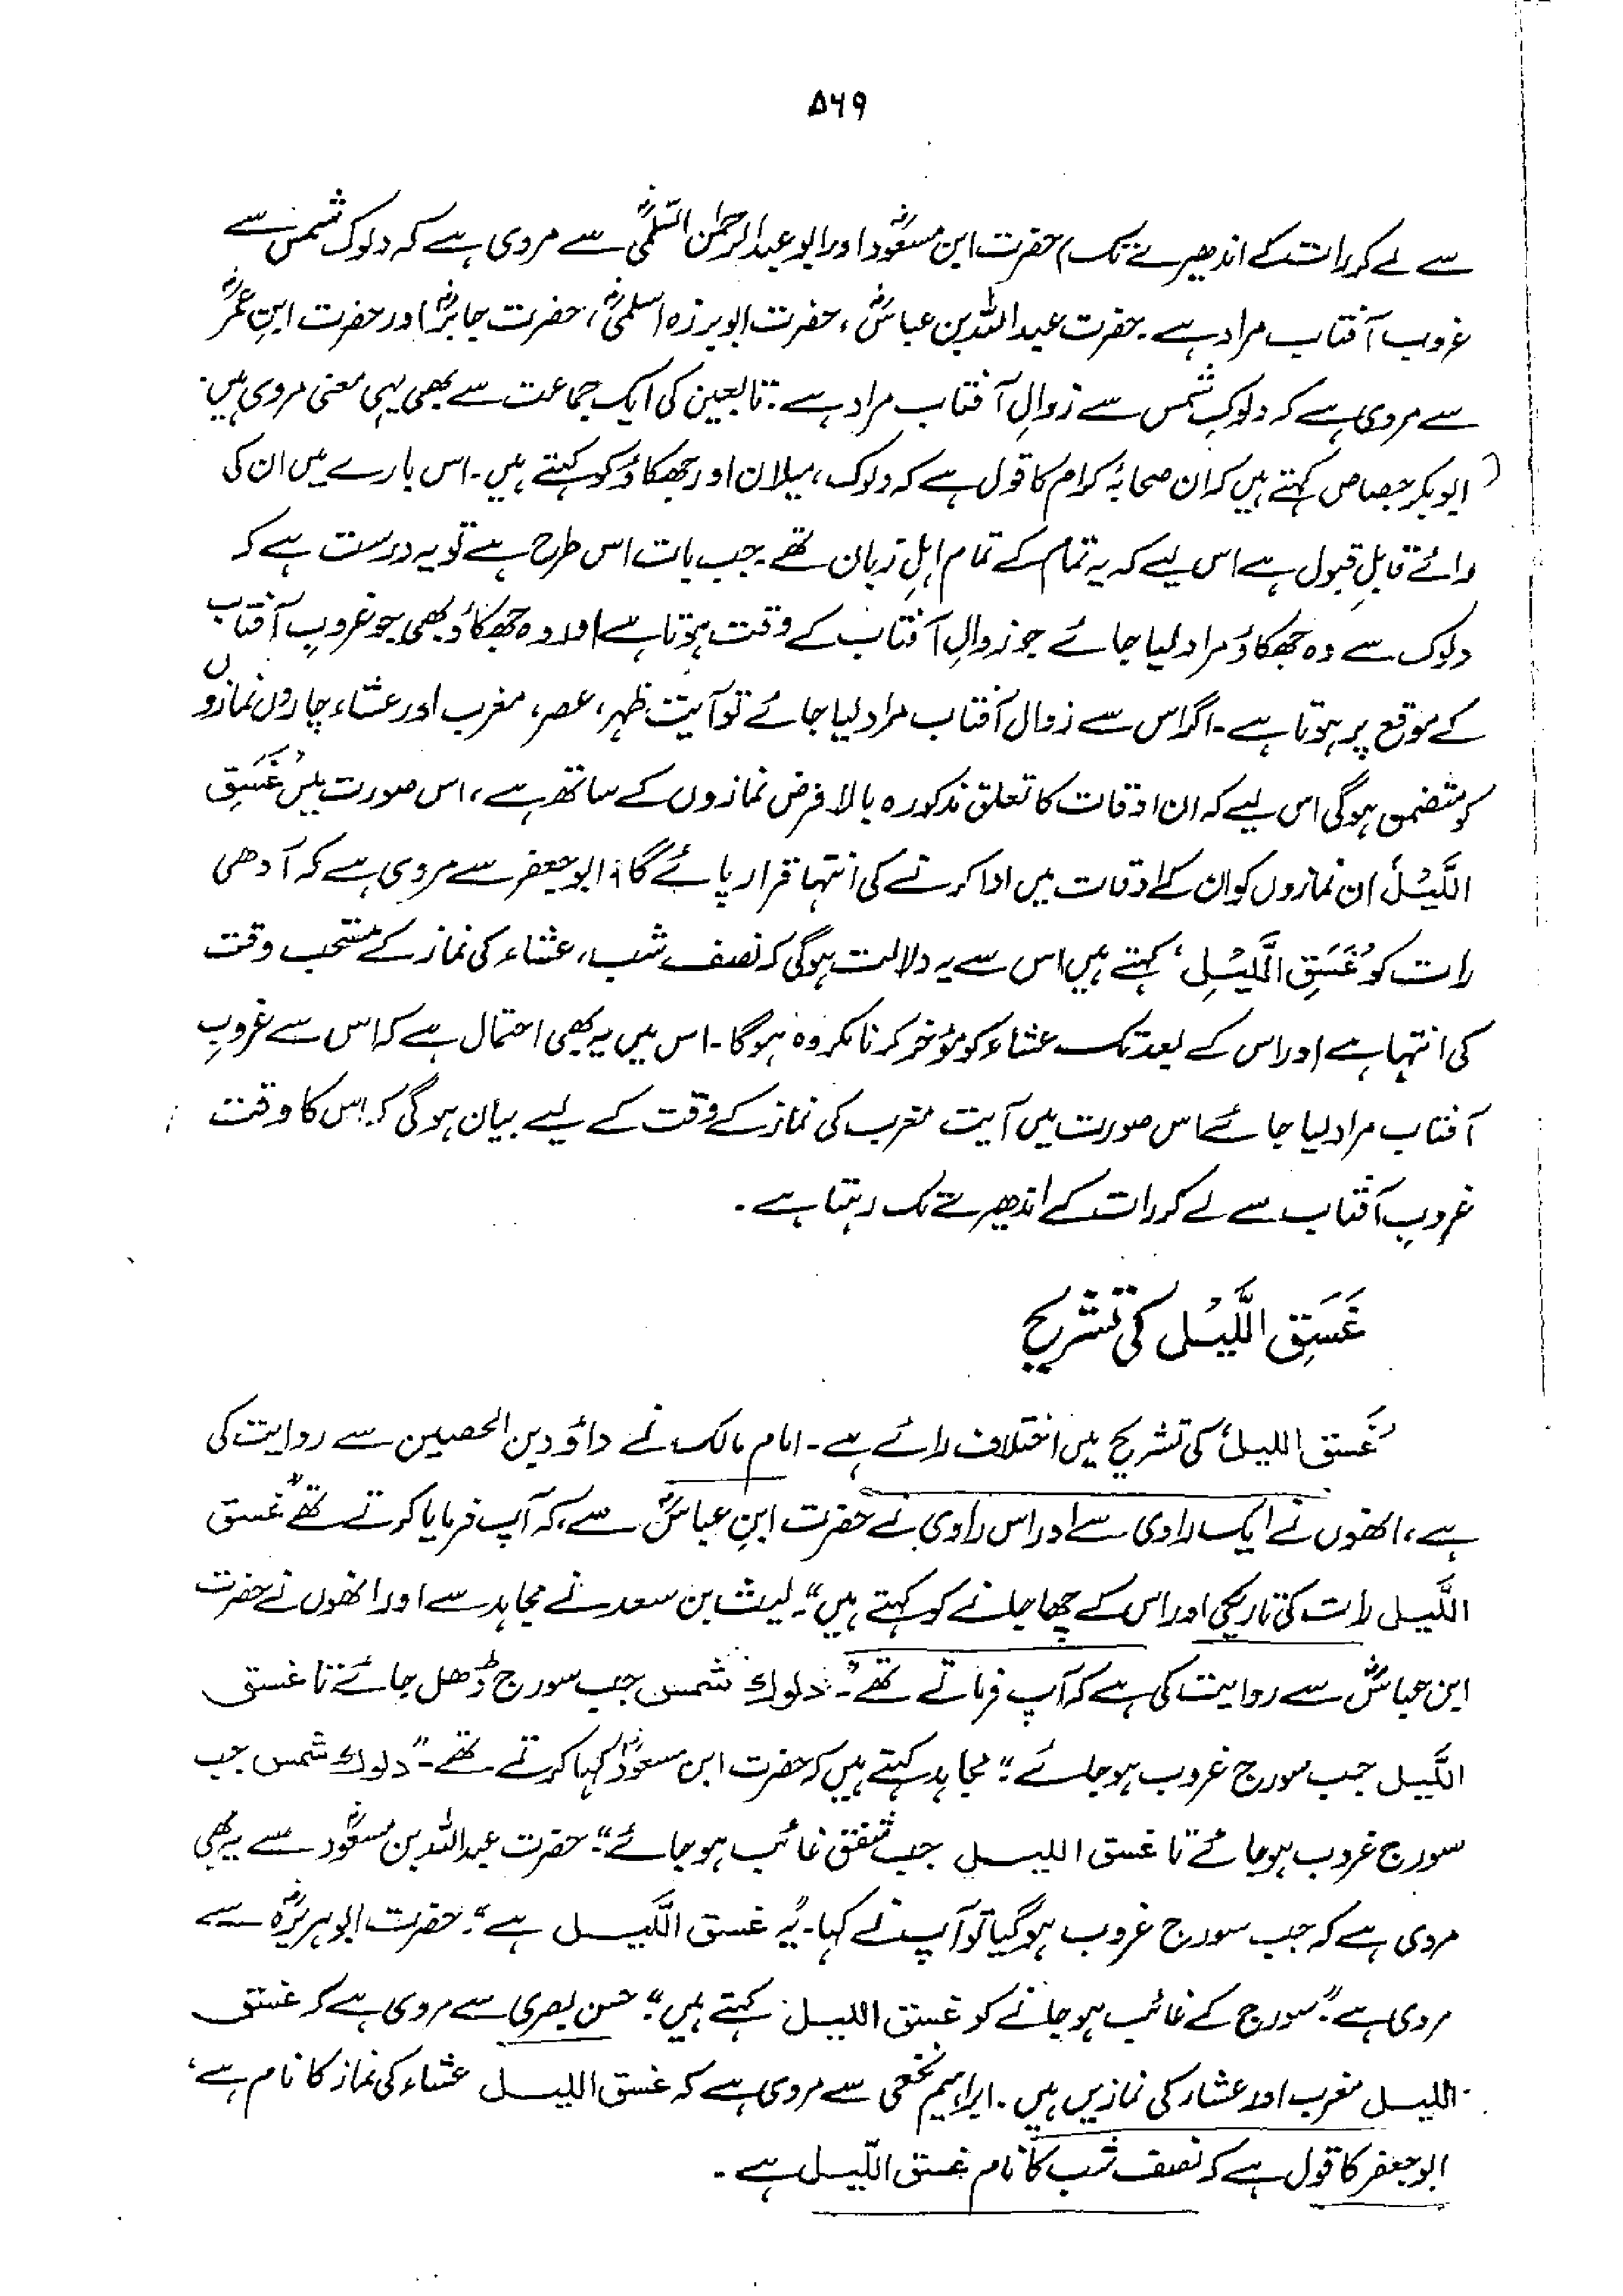 ۵۶۹
سے لے کر رات کے اندھیرے تک) حضرت ابن مسعودؓ اور ابو عبدالرحمٰن السلمیؓ سے مروی ہے کہ دلوک شمس سے
غروب آفتاب مراد ہے۔ حضرت عبداللہ بن عباسؓ، حضرت ابوبرزہ اسلمیؓ، حضرت جابرؓ اور حضرت ابنِ عمرؓ
سے مروی ہے کہ دلوکِ شمس سے زوالِ آفتاب مراد ہے۔ تابعین کی ایک جماعت سے بھی یہی معنی مروی ہیں۔
ابوبکر جصاص کہتے ہیں کہ ان صحابۂ کرام کا قول ہے کہ دلوک، میلان اور جھکاؤ کو کہتے ہیں۔ اس بارے میں ان کی
رائے قابلِ قبول ہے اس لیے کہ یہ تمام کے تمام اہلِ زبان تھے۔ جب بات اس طرح ہے تو یہ درست ہے کہ
دلوک سے وہ جھکاؤ مراد لیا جائے جو زوالِ آفتاب کے وقت ہوتا ہے اور وہ جھکاؤ بھی جو غروبِ آفتاب
کے موقع پر ہوتا ہے۔ اگر اس سے زوال آفتاب مراد لیا جائے تو آیت ظہر، عصر، مغرب اور عشاء چاروں نمازوں
کو متضمن ہوگی اس لیے کہ ان اوقات کا تعلق مذکورہ بالا فرض نمازوں کے ساتھ ہے، اس صورت میں ’غَسَقِ
اللَّیْلِ‘ ان نمازوں کو ان کے اوقات میں ادا کرنے کی انتہا قرار پائے گا۔ ابو جعفر سے مروی ہے کہ آدھی
رات کو ’غَسَقِ اللَّیْلِ‘ کہتے ہیں اس سے یہ دلالت ہوگی کہ نصف شب، عشاء کی نماز کے مستحب وقت
کی انتہا ہے اور اس کے بعد تک عشاء کو مؤخر کرنا مکروہ ہوگا۔ اس میں یہ بھی احتمال ہے کہ اس سے غروبِ
آفتاب مراد لیا جائے اس صورت میں آیت مغرب کی نماز کے وقت کے لیے بیان ہوگی کہ اس کا وقت
غروبِ آفتاب سے لے کر رات کے اندھیرے تک رہتا ہے۔
غَسَقِ اللَّیْل کی تشریح
’غَسق اللیل‘ کی تشریح میں اختلاف رائے ہے۔ امام مالک نے داؤد بن الحصین سے روایت کی
ہے، انھوں نے ایک راوی سے اور اس راوی نے حضرت ابنِ عباسؓ سے، کہ آپ فرمایا کرتے تھے ”غَسق
اللَّیل رات کی تاریکی اور اس کے چھا جانے کو کہتے ہیں“۔ لیث بن سعد نے مجاہد سے اور انھوں نے حضرت
ابن عباسؓ سے روایت کی ہے کہ آپ فرماتے تھے ”۔ دلوك شمس جب سورج ڈھل جائے تا غسق
اللَّیل جب سورج غروب ہو جائے“۔ مجاہد کہتے ہیں کہ حضرت ابن مسعودؓ کہا کرتے تھے۔ ”دلوك شمس جب
سورج غروب ہو جائے تا غسق اللیل جب شفق غائب ہو جائے“۔ حضرت عبداللہ بن مسعودؓ سے یہ بھی
مروی ہے کہ جب سورج غروب ہو گیا تو آپ نے کہا۔ ”یہ غسق اللَّیل ہے“۔ حضرت ابوہریرہؓ سے
مروی ہے ”سورج کے غائب ہو جانے کو غسق اللیل کہتے ہیں“۔ حسن بصری سے مروی ہے کہ غسق
اللیل مغرب اور عشاء کی نمازیں ہیں۔ ابراہیم نخعی سے مروی ہے کہ غسق اللیل عشاء کی نماز کا نام ہے،
ابو جعفر کا قول ہے کہ نصف شب کا نام غسق اللَّیل ہے۔